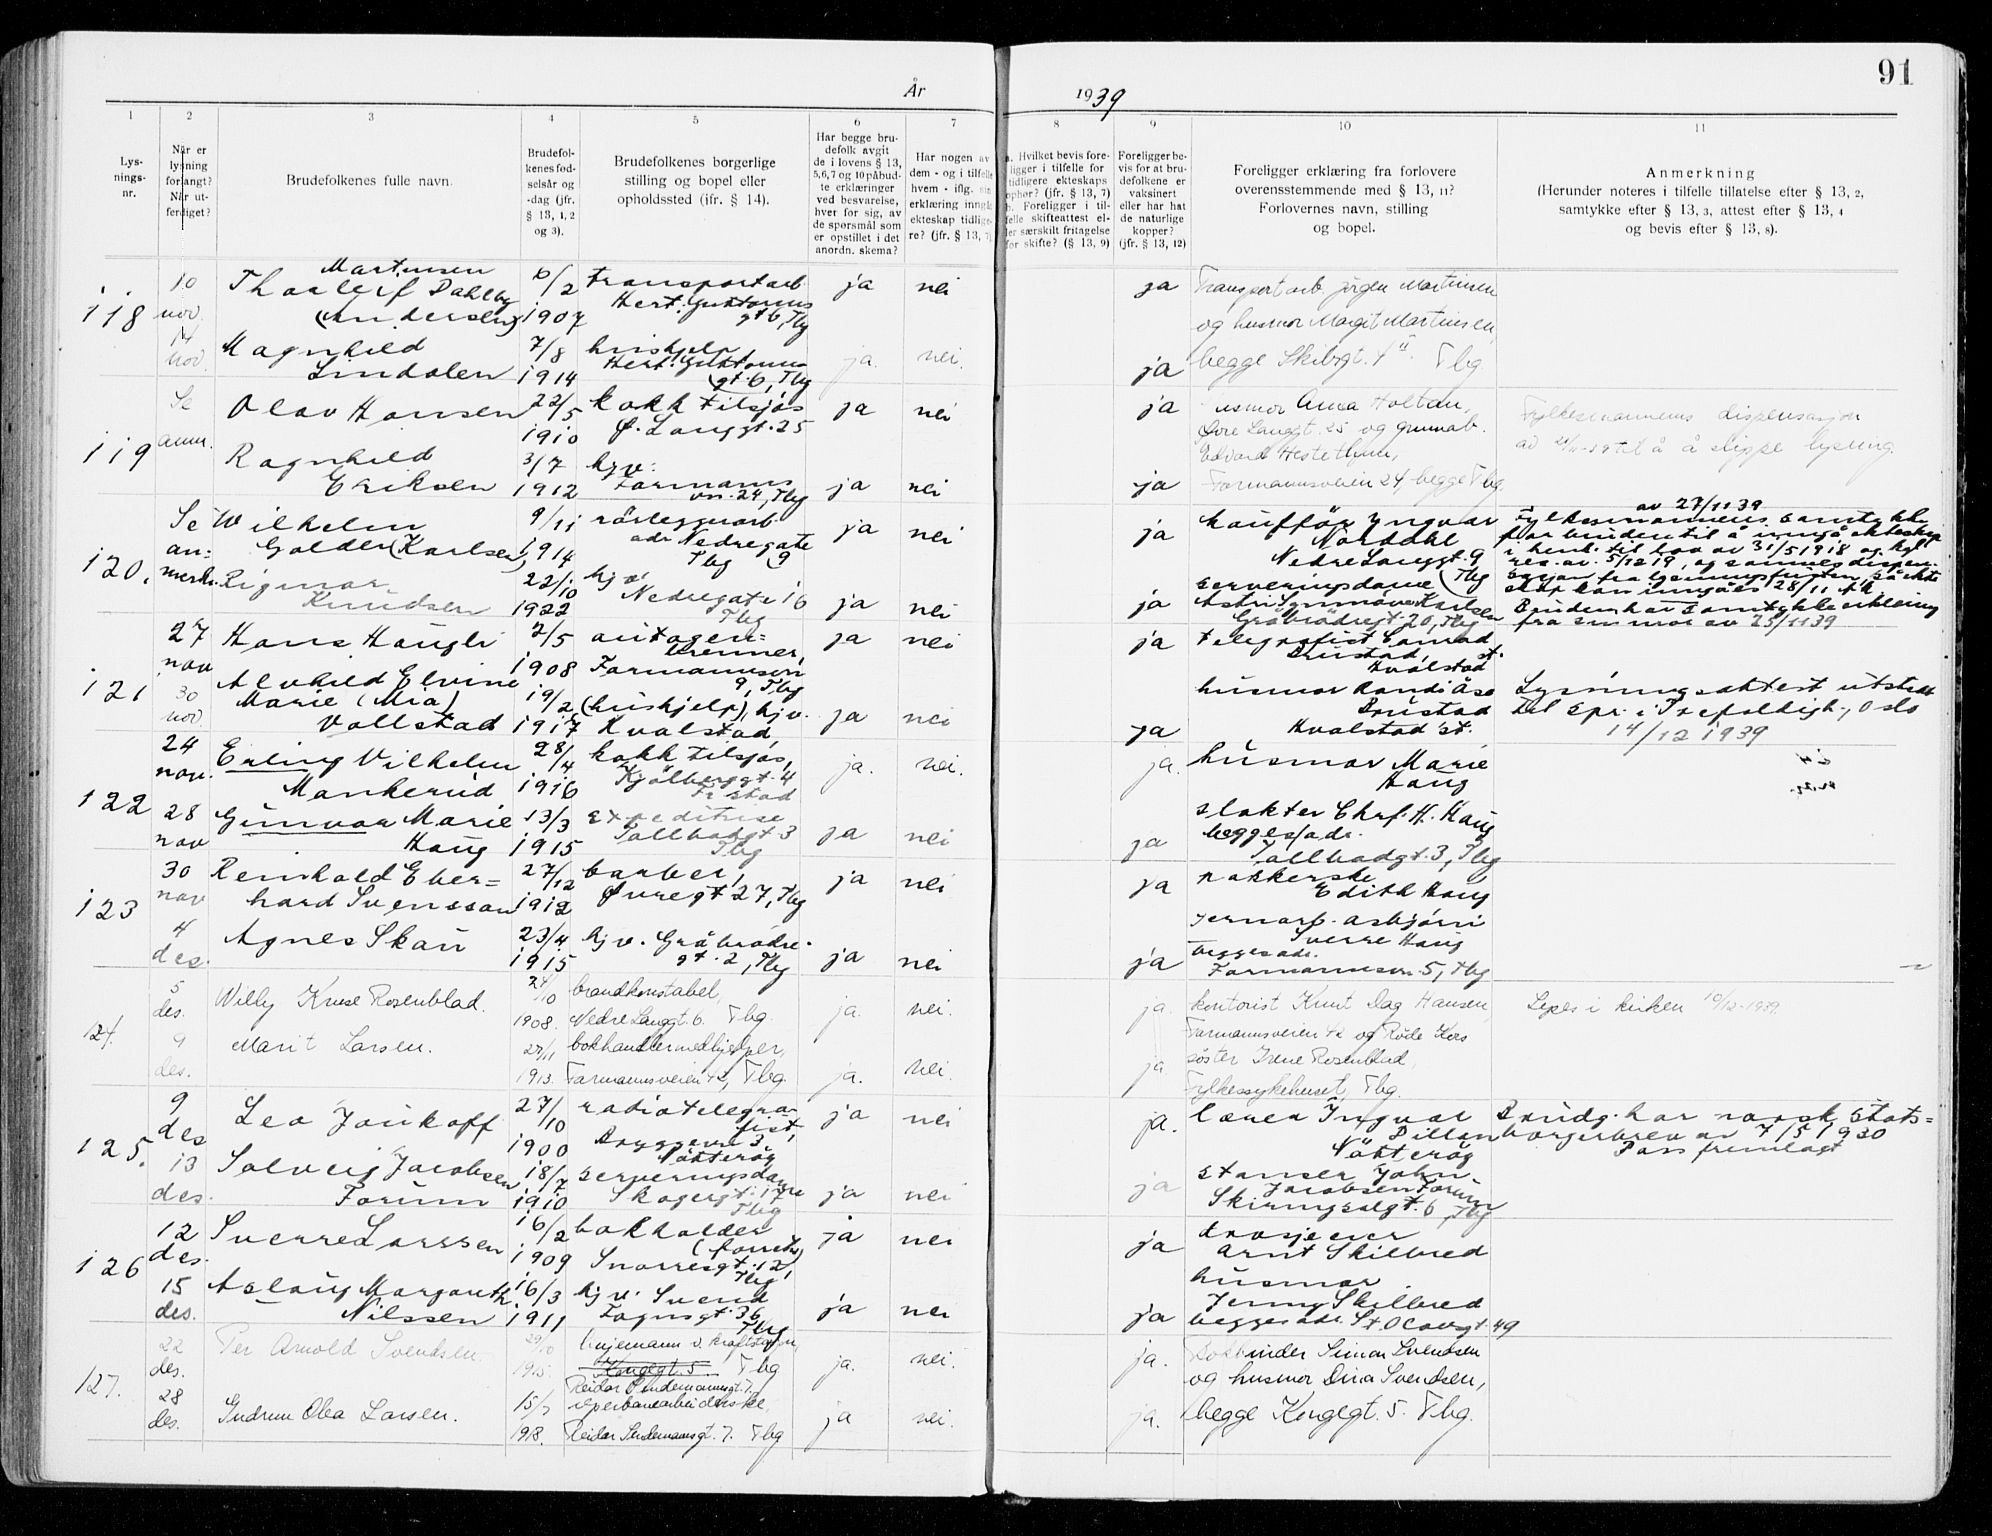 91
År 1939
1 2 3 4 5 6 7 8 9 10 11
Lys-
nings-
nr.
Når er
lysning
forlangt?
Når ut-
ferdiget?
Brudefolkenes fulle navn.
Brudefol-
kenes fød-
selsår og
-dag (jfr.
§ 13, 1, 2
og 3).
Brudefolkenes borgerlige
stilling og bopel eller
opholdssted (jfr. § 14).
Har begge bru-
defolk avgit
de i lovens § 13,
5,6,7 og 10 påbud-
te erklæringer
ved besvarelse,
hver for sig, av
de spørsmål som
er opstillet i det
anordn. skema?
Har nogen av
dem - og i tilfelle
hvem - iflg. sin
erklæring inngå
ekteskap tidlige-
re? (jfr. § 13, 7)
a. Hvilket bevis fore-
ligger i tilfelle for
tidligere ekteskaps
ophør? (jfr. § 13, 7)
b. Foreligger i til-
felle skifteattest el-
ler særskilt fritagelse
for skifte? (§ 13, 9)
Foreligger be-
vis for at bru-
defolkene er
vaksinert
eller har hat
de naturlige
kopper?
(jfr. § 13, 12)
Foreligger erklæring fra forlovere
overensstemmende med § 13, 11?
Forlovernes navn, stilling
og bopel.
Anmerkning
(Herunder noteres i tilfelle tillatelse efter § 13, 2,
samtykke efter § 13, 3, attest efter § 13, 4
og bevis efter § 13, 8).
118
10
nov.
14
nov.
Martinsen
Thorleif Dahlby
(Andersen)
10/2
1907
transportarb.
Hert. Guttorms
gt 6, Tbg
ja nei ja
Transportarb. Jörgen Martinsen
og husmor Margit Martinsen,
Magnhild
Lindalen
7/8
1914
hushjelp,
Hert. Guttorms
gt. 6, Tbg
ja. nei. ja
begge Skibsgt. 4 II Tbg
119
Se
anm.
Olav Hansen
22/5
1910
kokk tilsjøs
Ø. Langgt. 25
ja nei ja
Husmor Anna Holtan,
Øvre Langgt. 25 og grunnarb.
Edvard
Fylkesmannens dispensasjon
av 21/11-39 til å å slippe lysning.
Ragnhild
Eriksen
3/7
1912
hjv:
Farmanns
vn. 24, Tbg
ja nei ja
Farmannsveien 24, begge Tbg.
120.
Se
an=
merkn.
Wilhelm
Golden (Karlsen)
9/11
1914
rörleggerarb.
adr Nedregate
Tbg 9
ja nei ja
kauffför Yngvar
Norddahl
Nedre Langgt. 9
Tbg
av 27/11 39
Fylkesmannens samtykke
for bruden til å inngå ekteskap
i henh. til lov av 31/5 1918 og kgl
res. av 5/12 19, og samme dispen-
sasjon fra lysningsfristen, så ekte
skap kan inngåes 28/11 fk.
Bruden har samtykkeerklæring
fra sin mor av 25/11 39
Rigmor
Knudsen
22/10
1922
hjv.
Nedregate 16
Tbg
ja nei ja
serveringsdame
Astri Synnöve Karlsen
Gråbrödregt. 20, Tbg
121
27
nov
30
nov
Hans Haugli
2/5
1908
autogen=
brenner,
Farmannsvn
9, Tbg
ja nei ja
telegrafist Conrad
Brustad, st.
Hvalstad
Alvhild Elvine
Marie (Mia)
Vollstad
19/2
1917
(hushjelp), hjv.
Hvalstad
ja nei ja
husmor Randi Åse
Brustad
Hvalstad st.
Lysningsattest utstedt
til spr. i Trefoldigh., Oslo
14/12 1939
122
24
nov.
28
nov
Erling Vilhelm
Mankerud
28/4
1916
kokk tilsjøs,
Kjölberggt. 4
Fr stad
ja. nei. ja.
husmor Marie
Haug
Gunvor Marie
Haug
13/3
1915
expeditrise
Tollbodgt 3
Tbg
ja nei ja
slakter Chrf. H. Haug
begges adr.
Tollbodgt. 3, Tbg
123
30
nov
4
des.
Reinhold Eber=
hard Svensson
27/12
1912
barber,
Øvregt 27, Tbg
ja nei ja
pakkerske
Edith Haug
Agnes Skau
23/4
1915
hjv. Gråbrödre-
gt. 2, Tbg
ja nei ja
jernarb. Asbjörn
Sverre Haug
begges adr.
Farmannsvn. 5, Tbg
124.
5
des.
9
des.
Willy Kruse Rosenblad.
24/10
1908.
brandkonstabel,
Nedre Langgt. 6. Tbg.
ja. nei. ja.
kontorist Knut Dag Hansen,
Farmannsveien 42 og Røde Kors
Leses i kirken 10/12-1939.
Marit Larsen.
27/11
1913.
bokhandlermedhjelper,
Farmannsveien 42, Tbg.
ja. nei. ja
söster Irene Rosenblad,
Fylkessykehuset, Tbg.
125.
9
des
13
des.
Leo Joukoff
27/10
1900
radiotelegra-
fist,
Bryggevn 3,
Nötteröy
ja nei ja.
lærer Ingvar
Dillan
Nötteröy
Brudg. har norsk stats=
borgerbrev av 7/5 1930
Pass fremlagt
Solveig Jacobsen
Forum
18/7
1910
serveringsdame
Skogergt. 17
Tbg
ja nei ja
stanser John
Jacobsen Forum
Skiringsalgt. 6, Tbg
126
12
des.
15
des.
Sverre Larssen
16/2
1909
bokholder
(forretn)
Snorresgt. 12,
Tbg
ja nei ja
drosjeeier
Arnt Skilbred
Aslaug Margareth
Nilssen
16/3
1911
hjv. Svend
Foynsgt. 36
Tbg
ja nei ja
husmor
Jenny Skilbred
begges adr. St. Olavsgt. 49
127.
22
des.
28
des.
Per Arnold Svendsen.
29/10
1915.
linjemann v. kraftstasjon,
Kongegt. 5 Tbg
Reidar Sendemannsgt. 7.
ja. nei. ja.
Bokbinder Simon Svendsen
og husmor Dina Svendsen,
Gudrun Olea Larsen.
15/7
1918.
reperbanearbeiderske,
Reidar Sendemannsgt. 7. Tbg
ja nei. ja.
begge Kongegt. 5. Tbg.